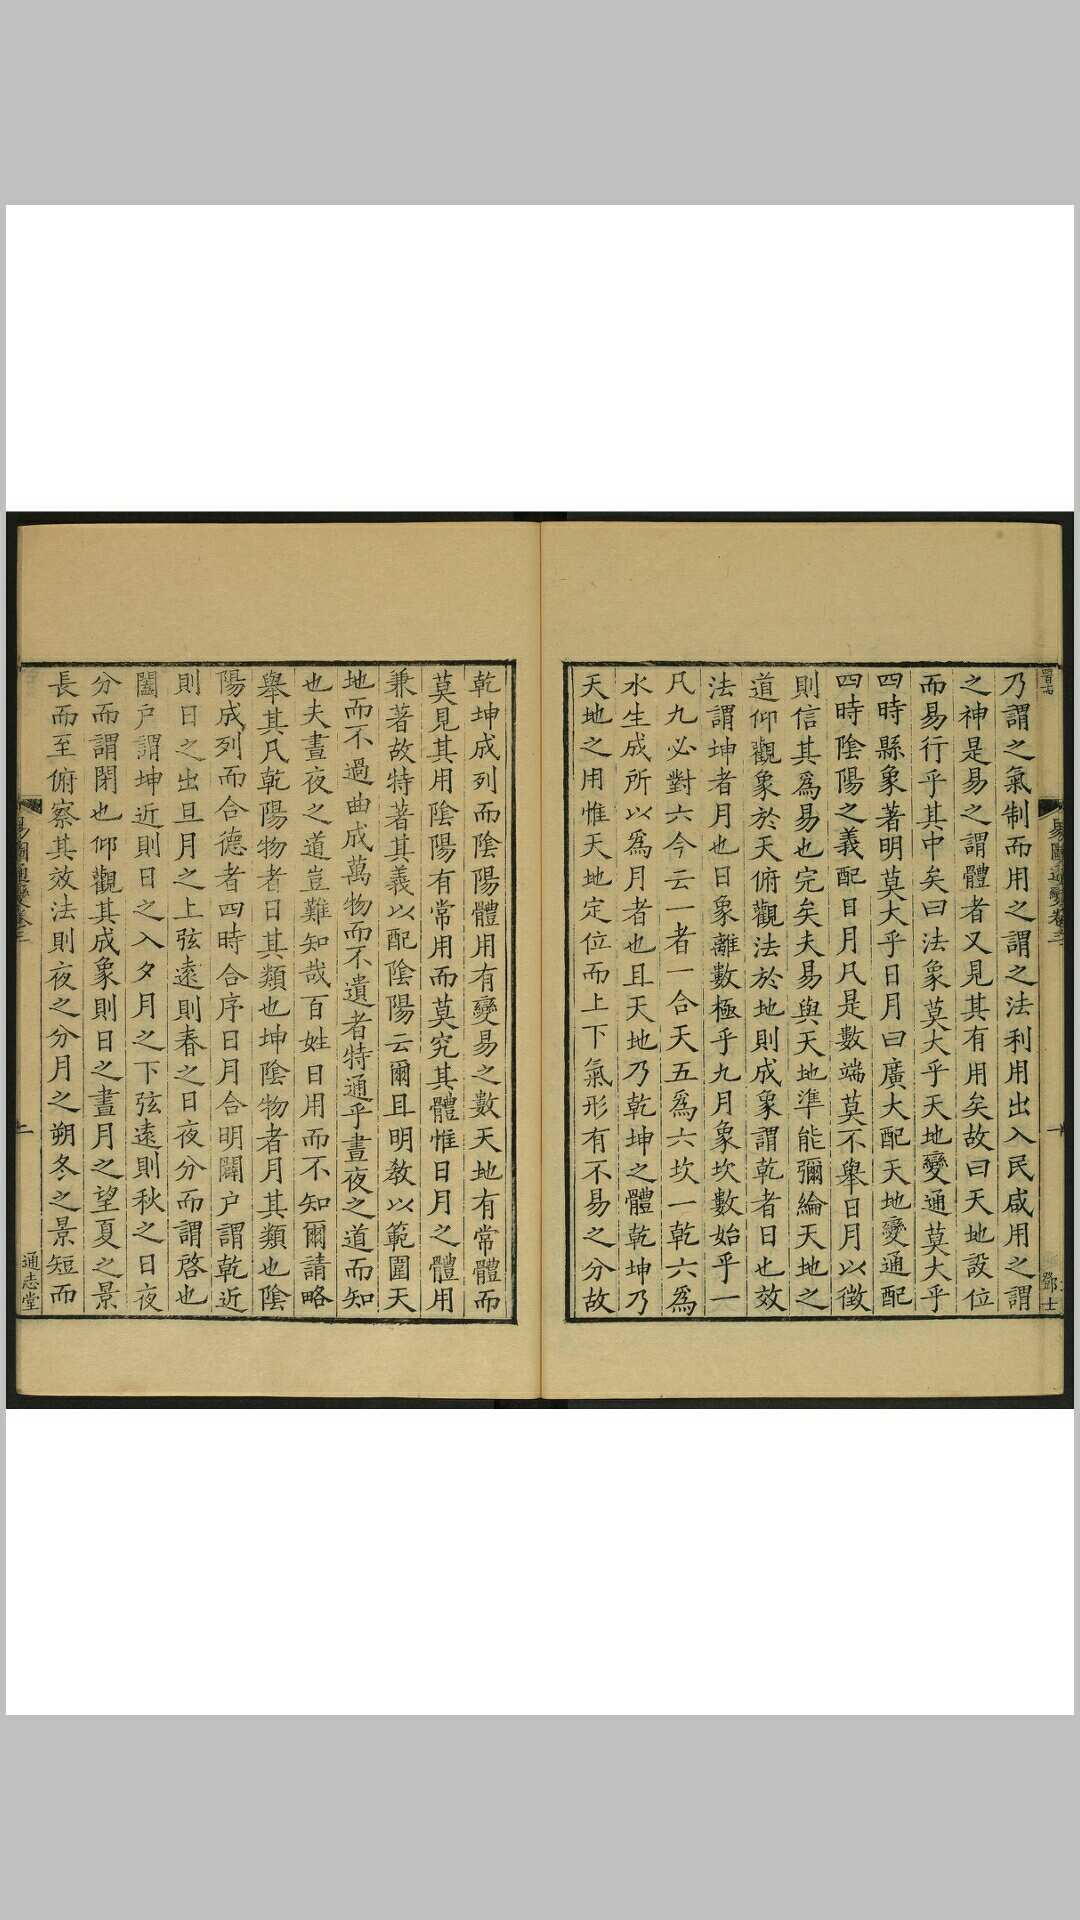 乃謂之氣制而用之謂之法利用出入民咸用之謂
之神是易之謂體者又見其有用矣故曰天地設位
而易行乎其中矣曰法象莫大乎天地變通莫大乎
四時縣象著明莫大乎日月曰廣大配天地變通配
四時陰陽之義配日月凡是數端莫不舉日月以徵
則信其爲易也完矣夫易與天地準能彌綸天地之
道仰觀象於天俯觀法於地則成象謂乾者日也效
法謂坤者月也日象離數極乎九月象坎數始乎一
凡九必對六今云一者一合天五爲六坎一乾六爲
水生成所以爲月者也且天地乃乾坤之體乾坤乃
天地之用惟天地定位而上下氣形有不易之分故
易圖通變卷三
一
鄧士
乾坤成列而陰陽體用有變易之數天地有常體而
莫見其用陰陽有常用而莫究其體惟日月之體用
兼著故特著其義以配陰陽云爾且明教以範圍天
地而不過曲成萬物而不遺者特通乎晝夜之道而知
也夫晝夜之道豈難知哉百姓日用而不知爾請略
舉其凡乾陽物者日其類也坤陰物者月其類也陰
陽成列而合德者四時合序日月合明闢户謂乾近
則日之出旦月之上弦遠則春之日夜分而謂啓也
闔户謂坤近則日之入夕月之下弦遠則秋之日夜
分而謂閉也仰觀其成象則日之晝月之望夏之景
長而至俯察其效法則夜之分月之朔冬之景短而
易圖通變卷三
通志堂